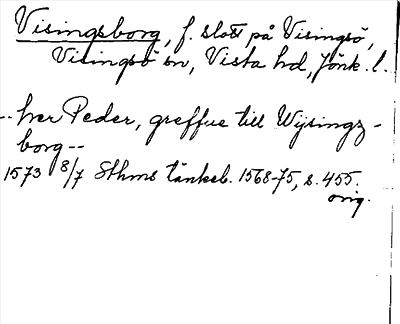 Visingsborg, f. slott på Visingsö,
Visingsö sn, Vista hd, Jönk. l.
-- her Peder, greffue till Wijsingz-
borg --
1573 8/7 Sthms tänkeb. 1568-75, s. 455.
orig.